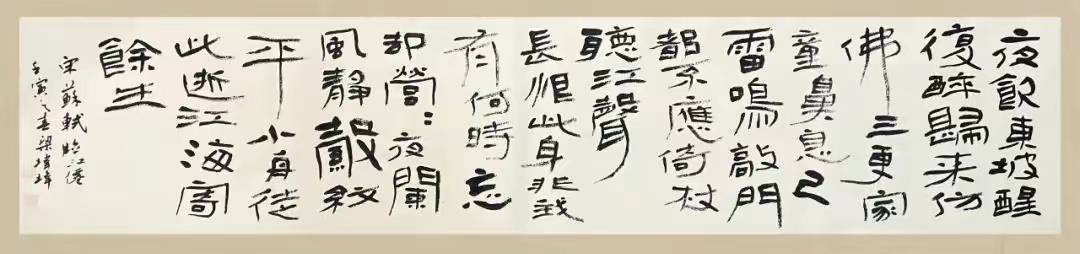 夜飲東坡醒
復醉歸来仿
佛三更家
童鼻息已
雷鳴敲門
都不應倚杖
聽江聲
長恨此身非我
有何時忘
却營〻夜闌
風靜縠紋
平小舟從
此逝江海寄
餘生
宋蘇軾臨江僊
壬寅之春梁